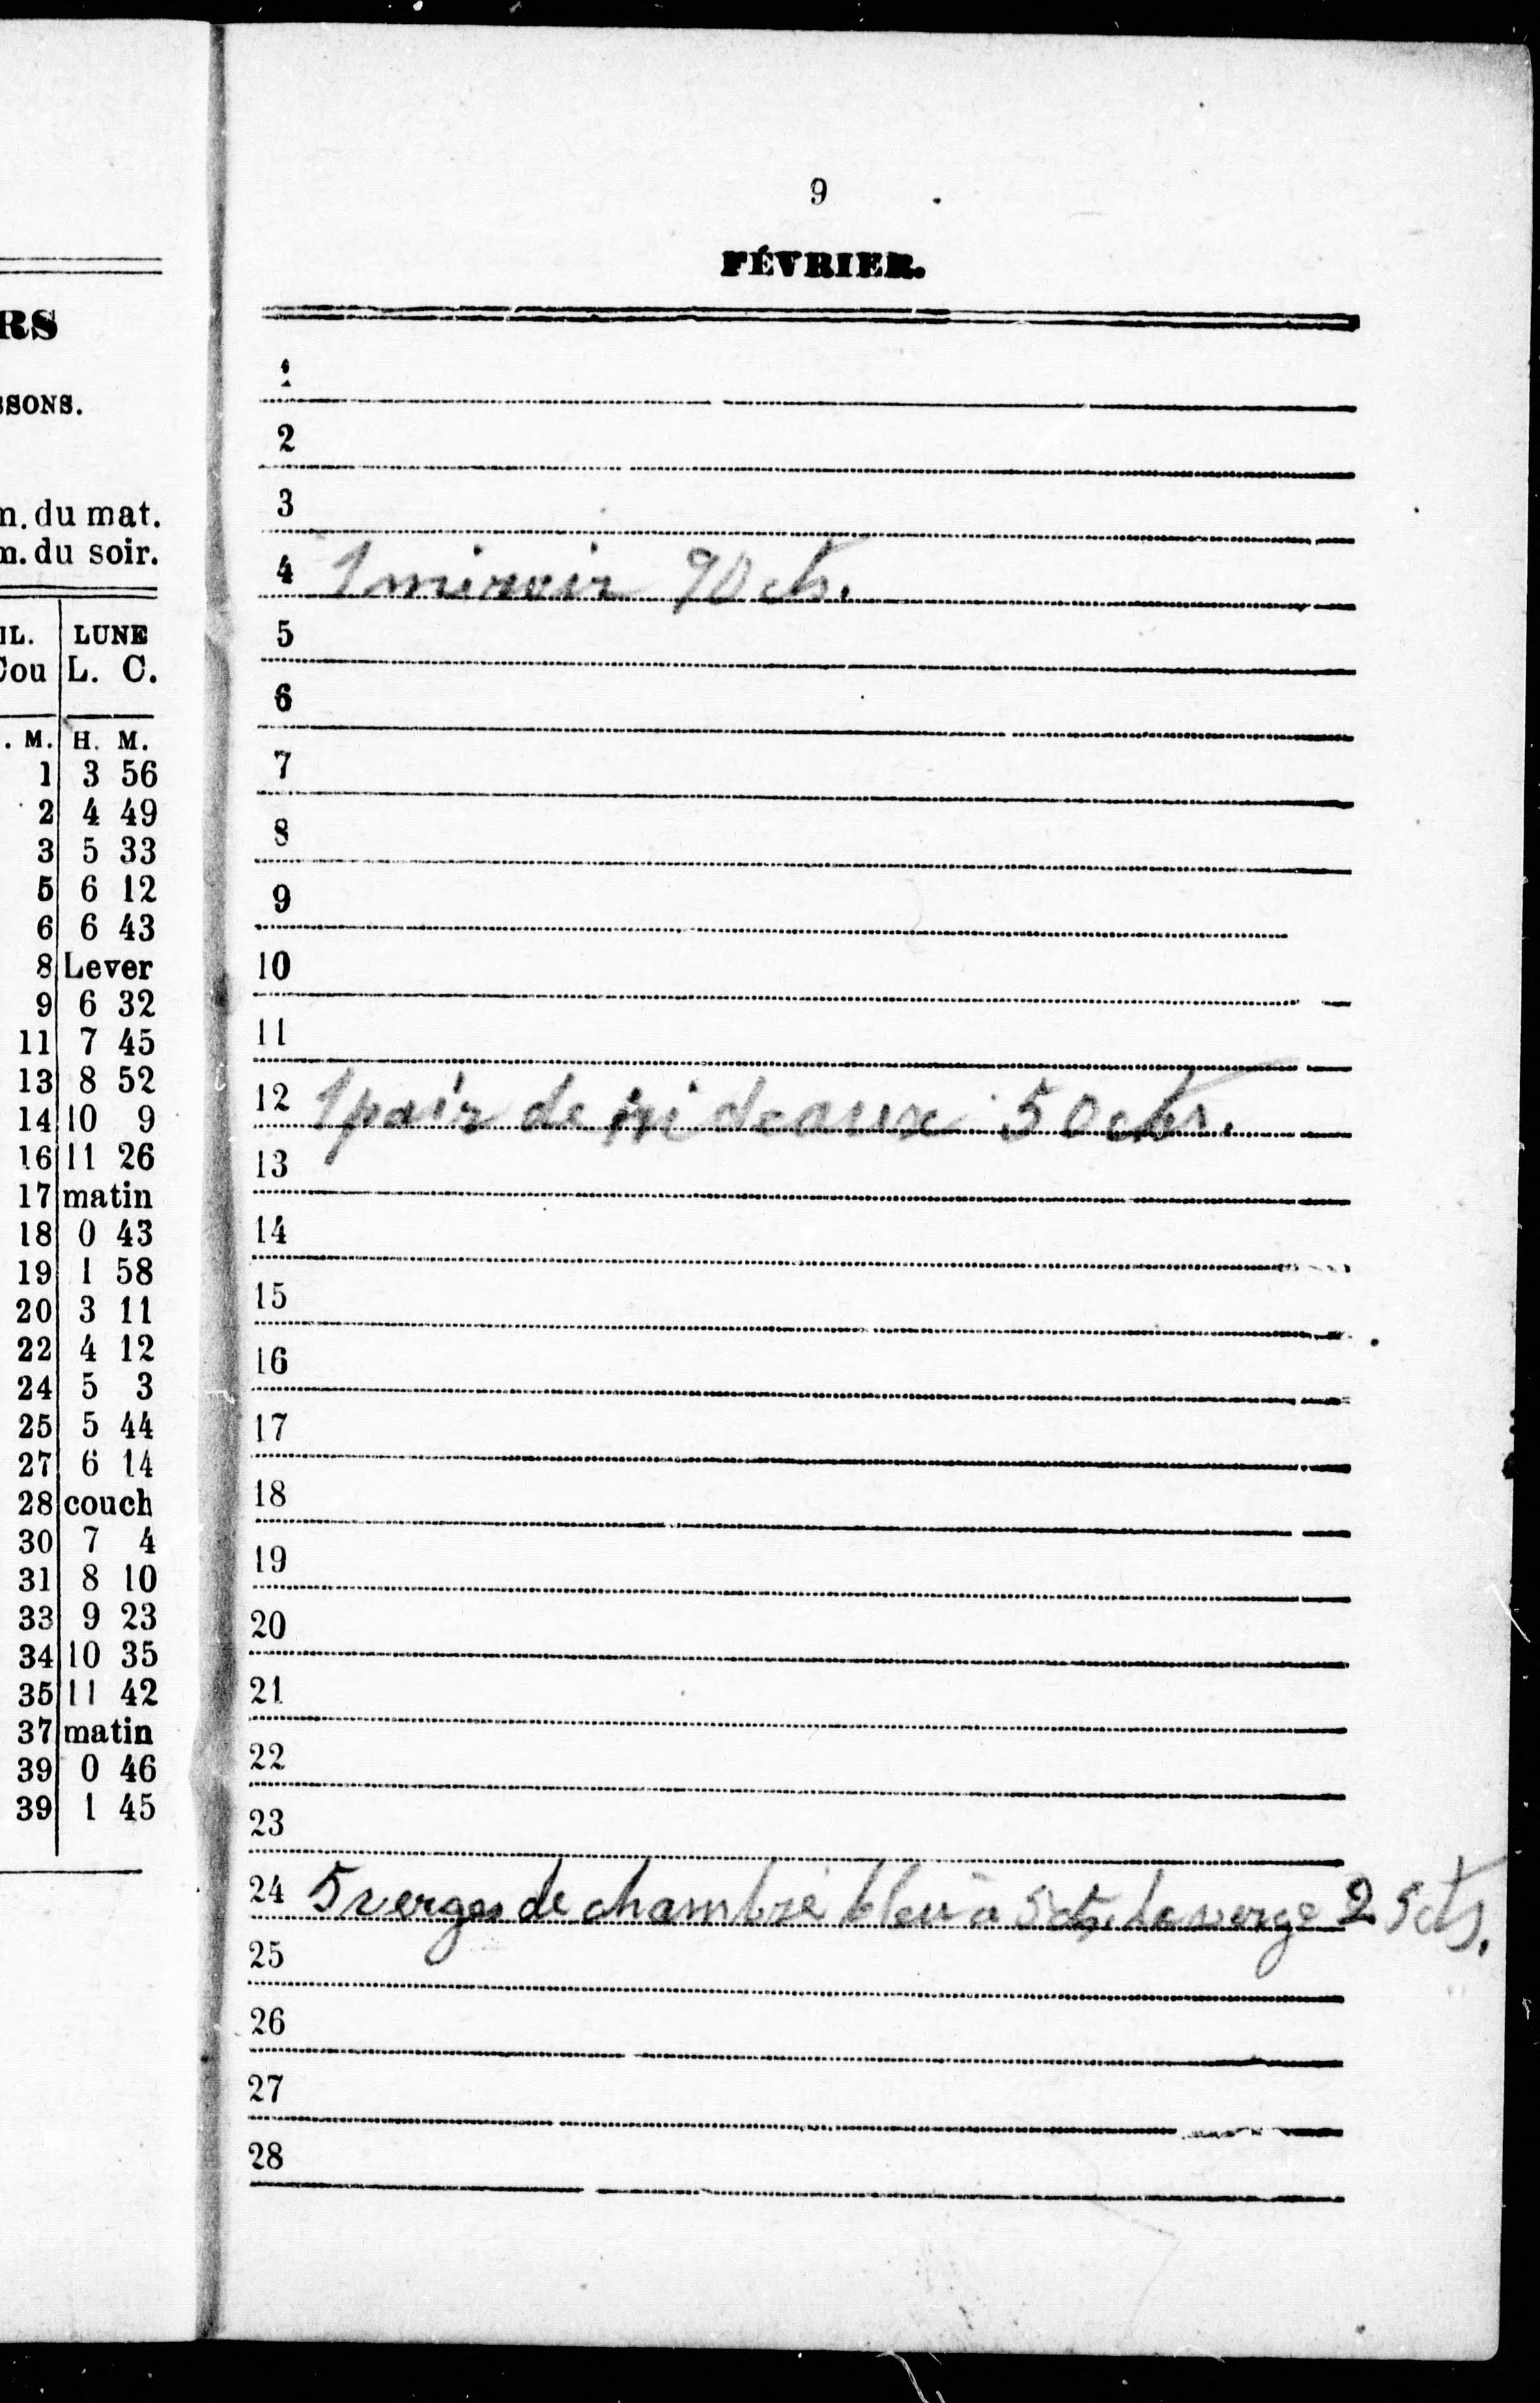 RS
SSONS.
m. du mat.
m. du soir.
IL. LUNE
Cou L. C.
. M. H. M.
1 3 56
2 4 49
3 5 33
5 6 12
6 6 43
8 Lever
9 6 32
11 7 45
13 8 52
14 10 9
16 11 26
17 matin
18 0 43
19 1 58
20 3 11
22 4 12
24 5 3
25 5 44
27 6 14
28 couch
30 7 4
31 8 10
33 9 23
34 10 35
35 11 42
37 matin
39 0 46
39 1 45
9
FÉVRIER.
1
2
3
4 1 miroir 90 cts.
5
6
7
8
9
10
11
12 1 pair de rideaux 50 cts.
13
14
15
16
17
18
19
20
21
22
23
24 5 verges de chambré bleu à 5 cts. la verge 25 cts.
25
26
27
28